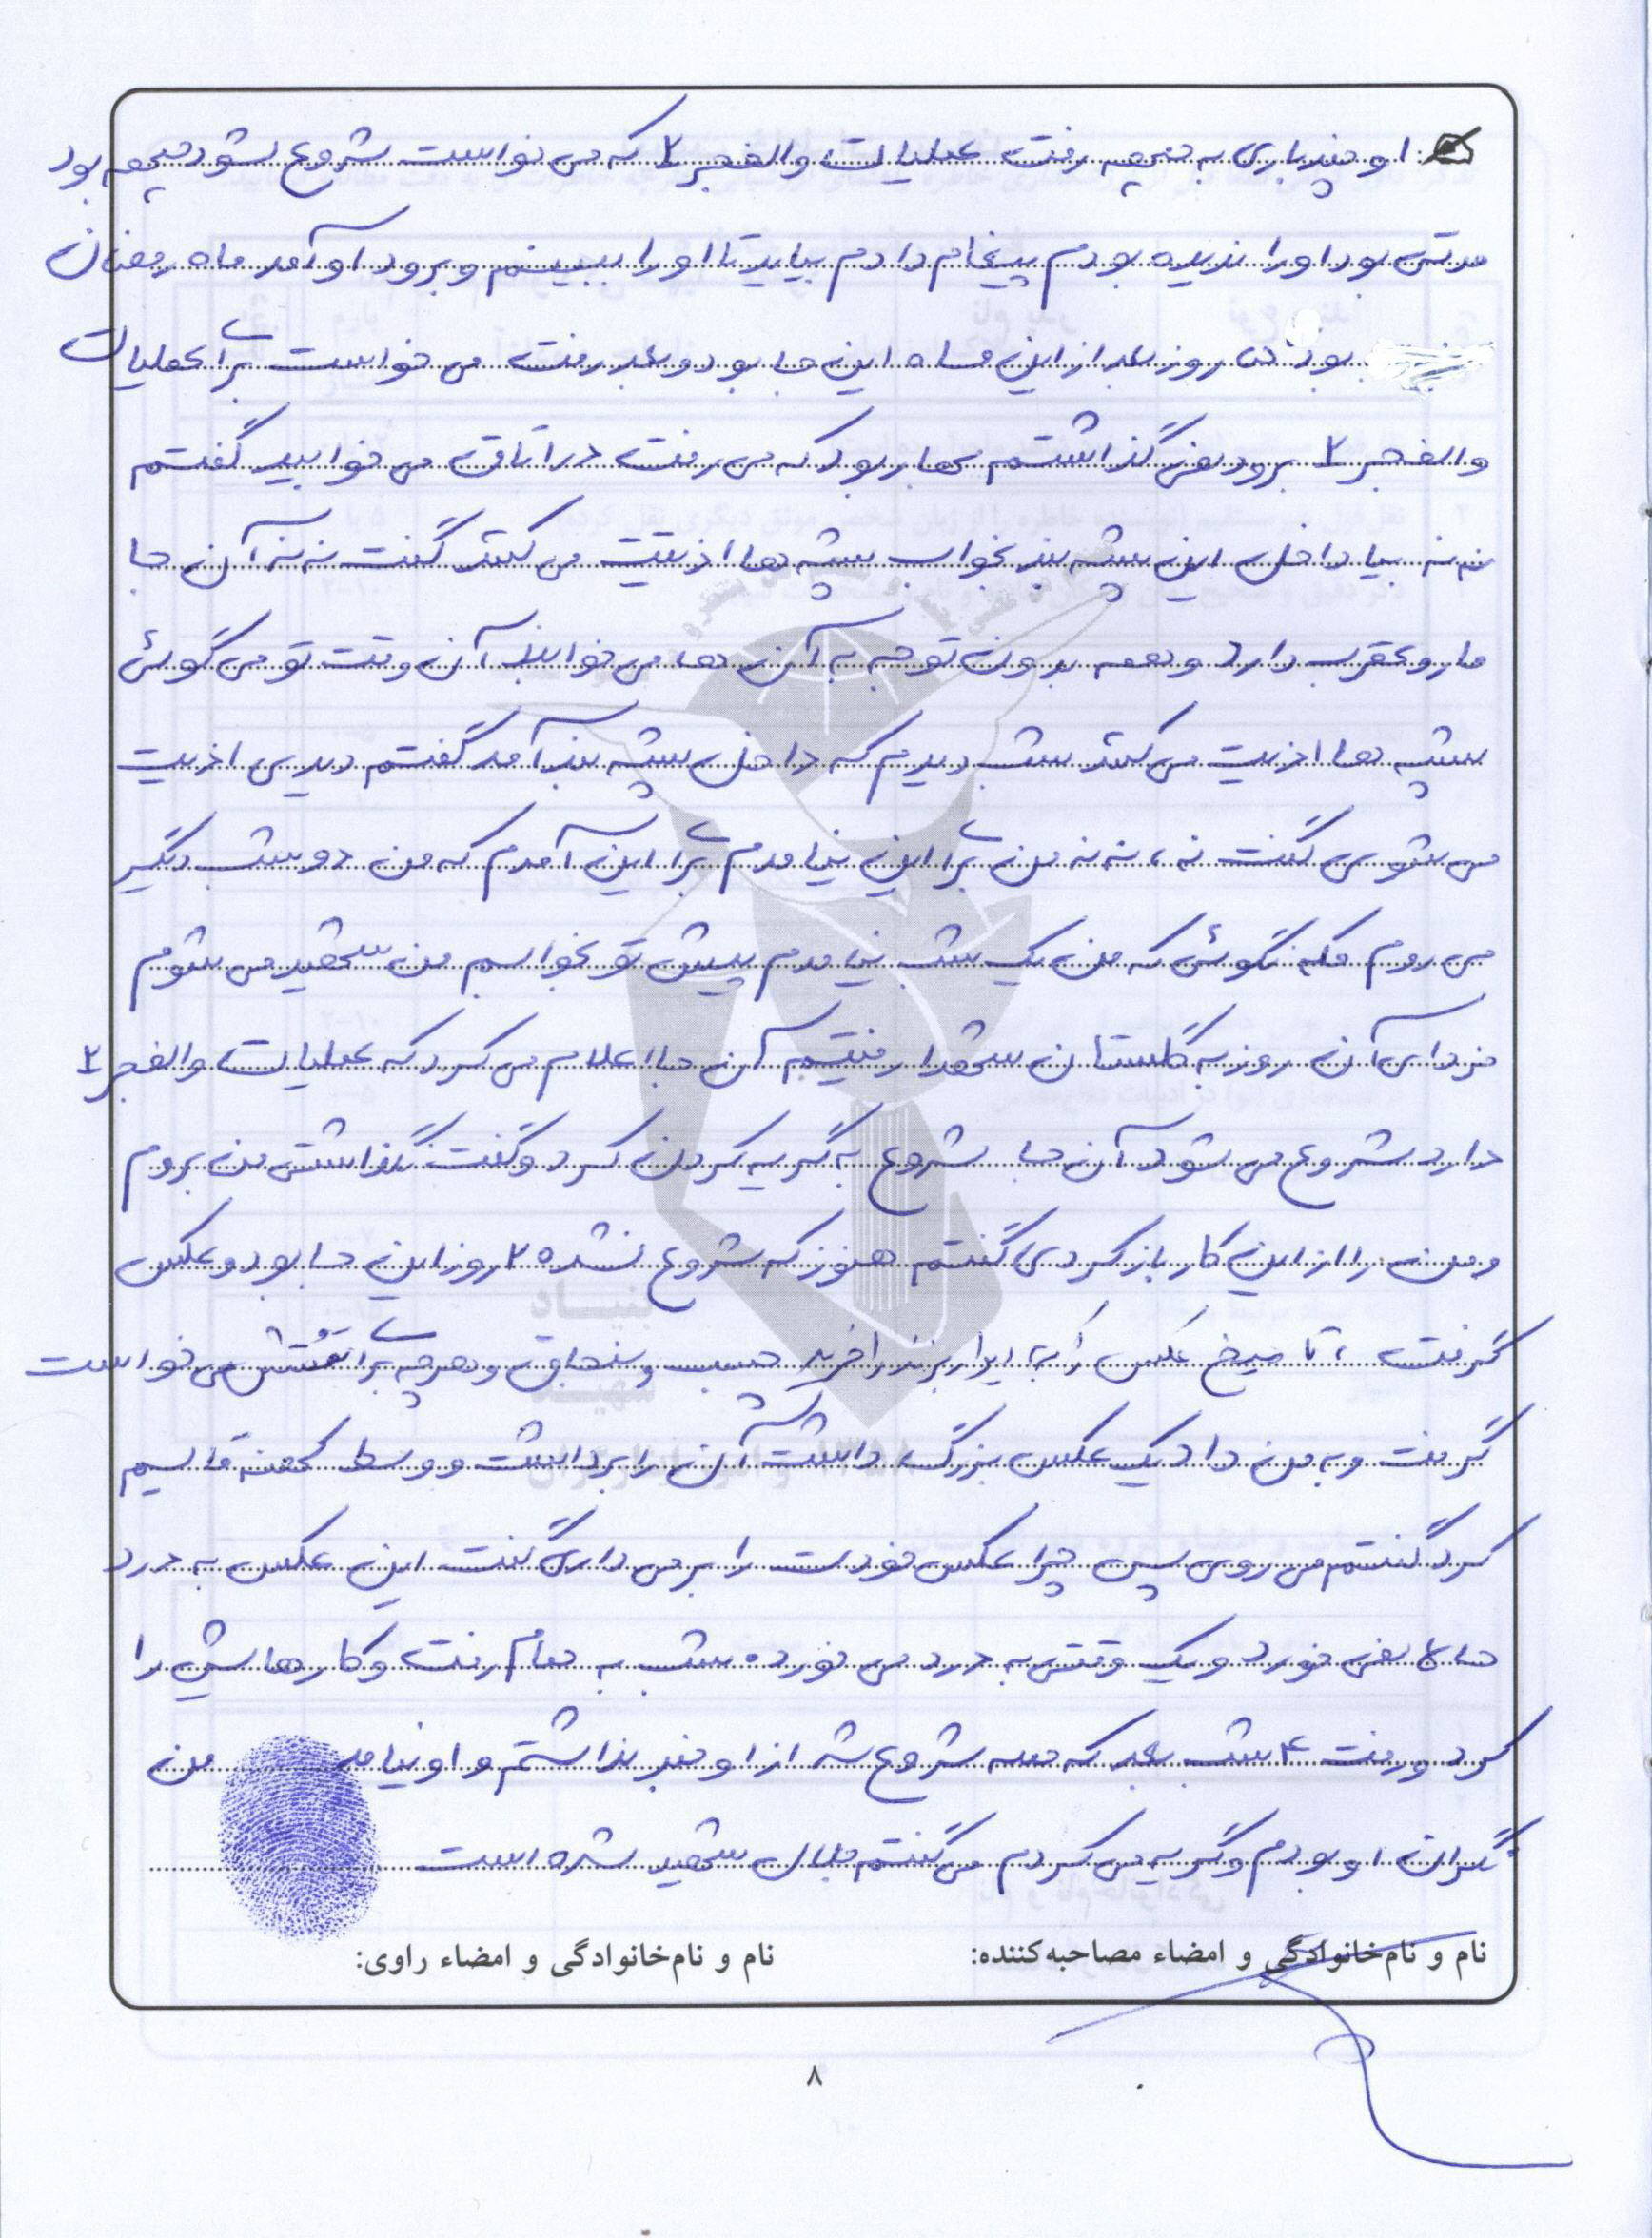 او چند باری به جبهه رفت عملیات والفجر ۲ که می خواست شروع شود جبهه بود
مدتی بود او را ندیده بودم پیغام دادم بیاید تا او را ببینم و برود او آمد ماه رمضان
بود روز بعد از این ماه این جا بود و بعد رفت می خواست برای عملیات
والفجر ۲ برود نمی گذاشتم بهار بود که می رفت در اتاق می خوابید گفتم
ننه بیا داخل این پشه بند بخواب پشه ها اذیتت می کنند گفت ننه آن جا
مار و عقرب دارد و همه بدون توجه به آن ها می خوابند آن وقت تو می گوئی
پشه ها اذیت می کنند شب دیدم که داخل پشه بند آمد گفتم دیدی اذیت
می شوی گفت نه ، ننه من برای این نیامدم برای این آمدم که من دو شب دیگر
می روم مکه نگوئی که من یک شب نیامدم پیش تو بخوابم من شهید می شوم
فردای آن روز به گلستان شهدا رفتیم آن جا اعلام می کرد که عملیات والفجر ۲
دارد شروع می شود آن جا شروع به گریه کردن کرد و گفت نگذاشتی من بروم
و من را از این کار باز کردی گفتم هنوز که شروع نشده ۲ روز این جا بود و عکس
گرفت ، تا میخ عکس را به دیوار بزند را خرید چسب و سنجاق و هرچه برای می خواست
گرفت و به من داد یک عکس بزرگ داشت آن را برداشت و وسط کمد قایم
کرد گفتم می روی پس چرا عکس خودت را بر می داری گفت این عکس به درد
حالا نمی خورد و یک وقتی به درد می خورد. شب به حمام رفت و کارهایش را
کرد و رفت ۴ شب بعد که حمله شروع شد از او خبر نداشتم و او نیامد من
نگران او بودم و گریه می کردم می گفتم جلال شهید شده است
نام و نام‌خانوادگی و امضاء مصاحبه‌کننده: نام و نام‌خانوادگی و امضاء راوی:
۸